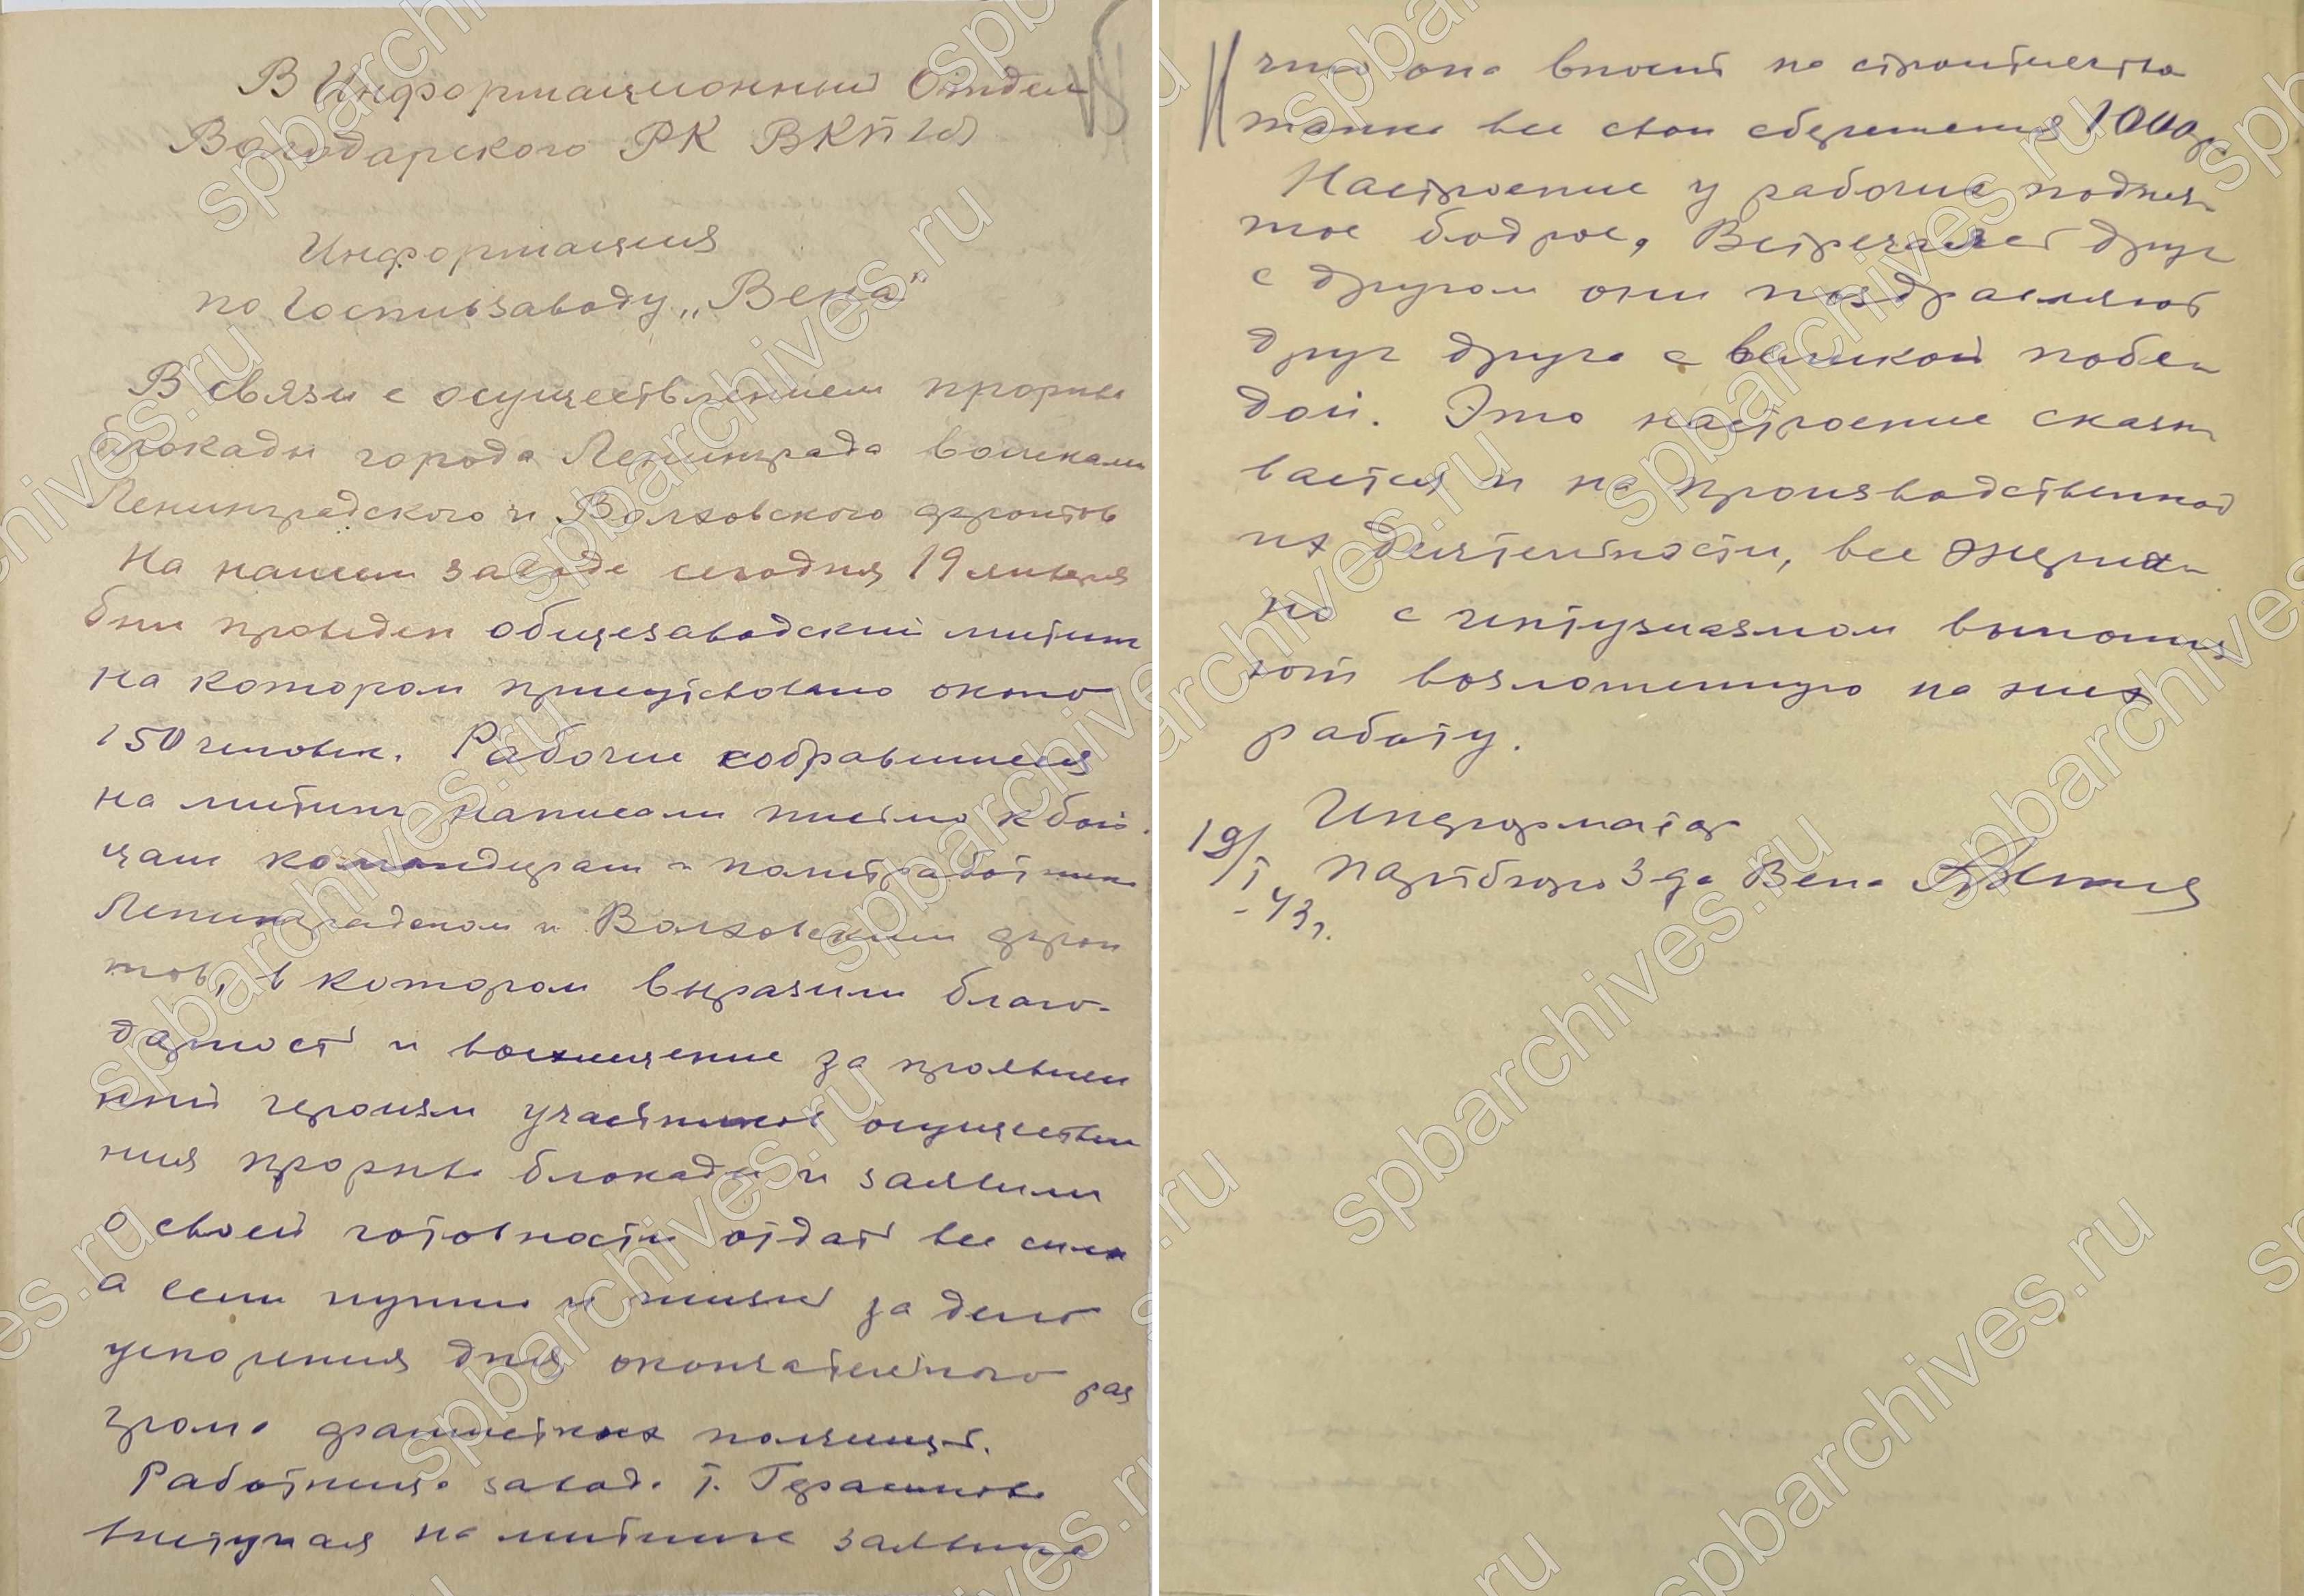 В Информационный Отдел
Володарского РК ВКП(б)
Информация
по Госпивзаводу „Вена"
В связи с осуществлением прорыва
блокады города Ленинграда войсками
Ленинградского и Волховского фронтов
На нашем заводе сегодня 19 января
был проведен общезаводский митинг
на котором присутствовало около
150 человек. Рабочие собравшиеся
на митинг написали письмо к бой-
цам командирам и политработникам
Ленинградском и Волховским фрон
тов, в котором выразили благо-
дарность и восхищение за проявлен
ный героизм участников осуществле
ния прорыва блокады и заявили
о своей готовности отдать все силы
а если нужно и жизнь за дело
ускорения дня окончательного раз
грома фашистких полчищ.
Работница завода т. Герасимова
выступая на митинге заявила
что она вносит на строительство
танка все свои сбережения 1000 р.
Настроение у рабочих подня-
тое бодрое, Встречаясь друг
с другом они поздравляют
друг друга с великой побе-
дой. Это настроение сказы-
вается и на производственной
их деятельности, все энергич-
но с интузиазмом выполня
ют возложенную на них
работу.
Информатор
партбюро з-да Вена
19/I
-43г.
spbarchives.ru